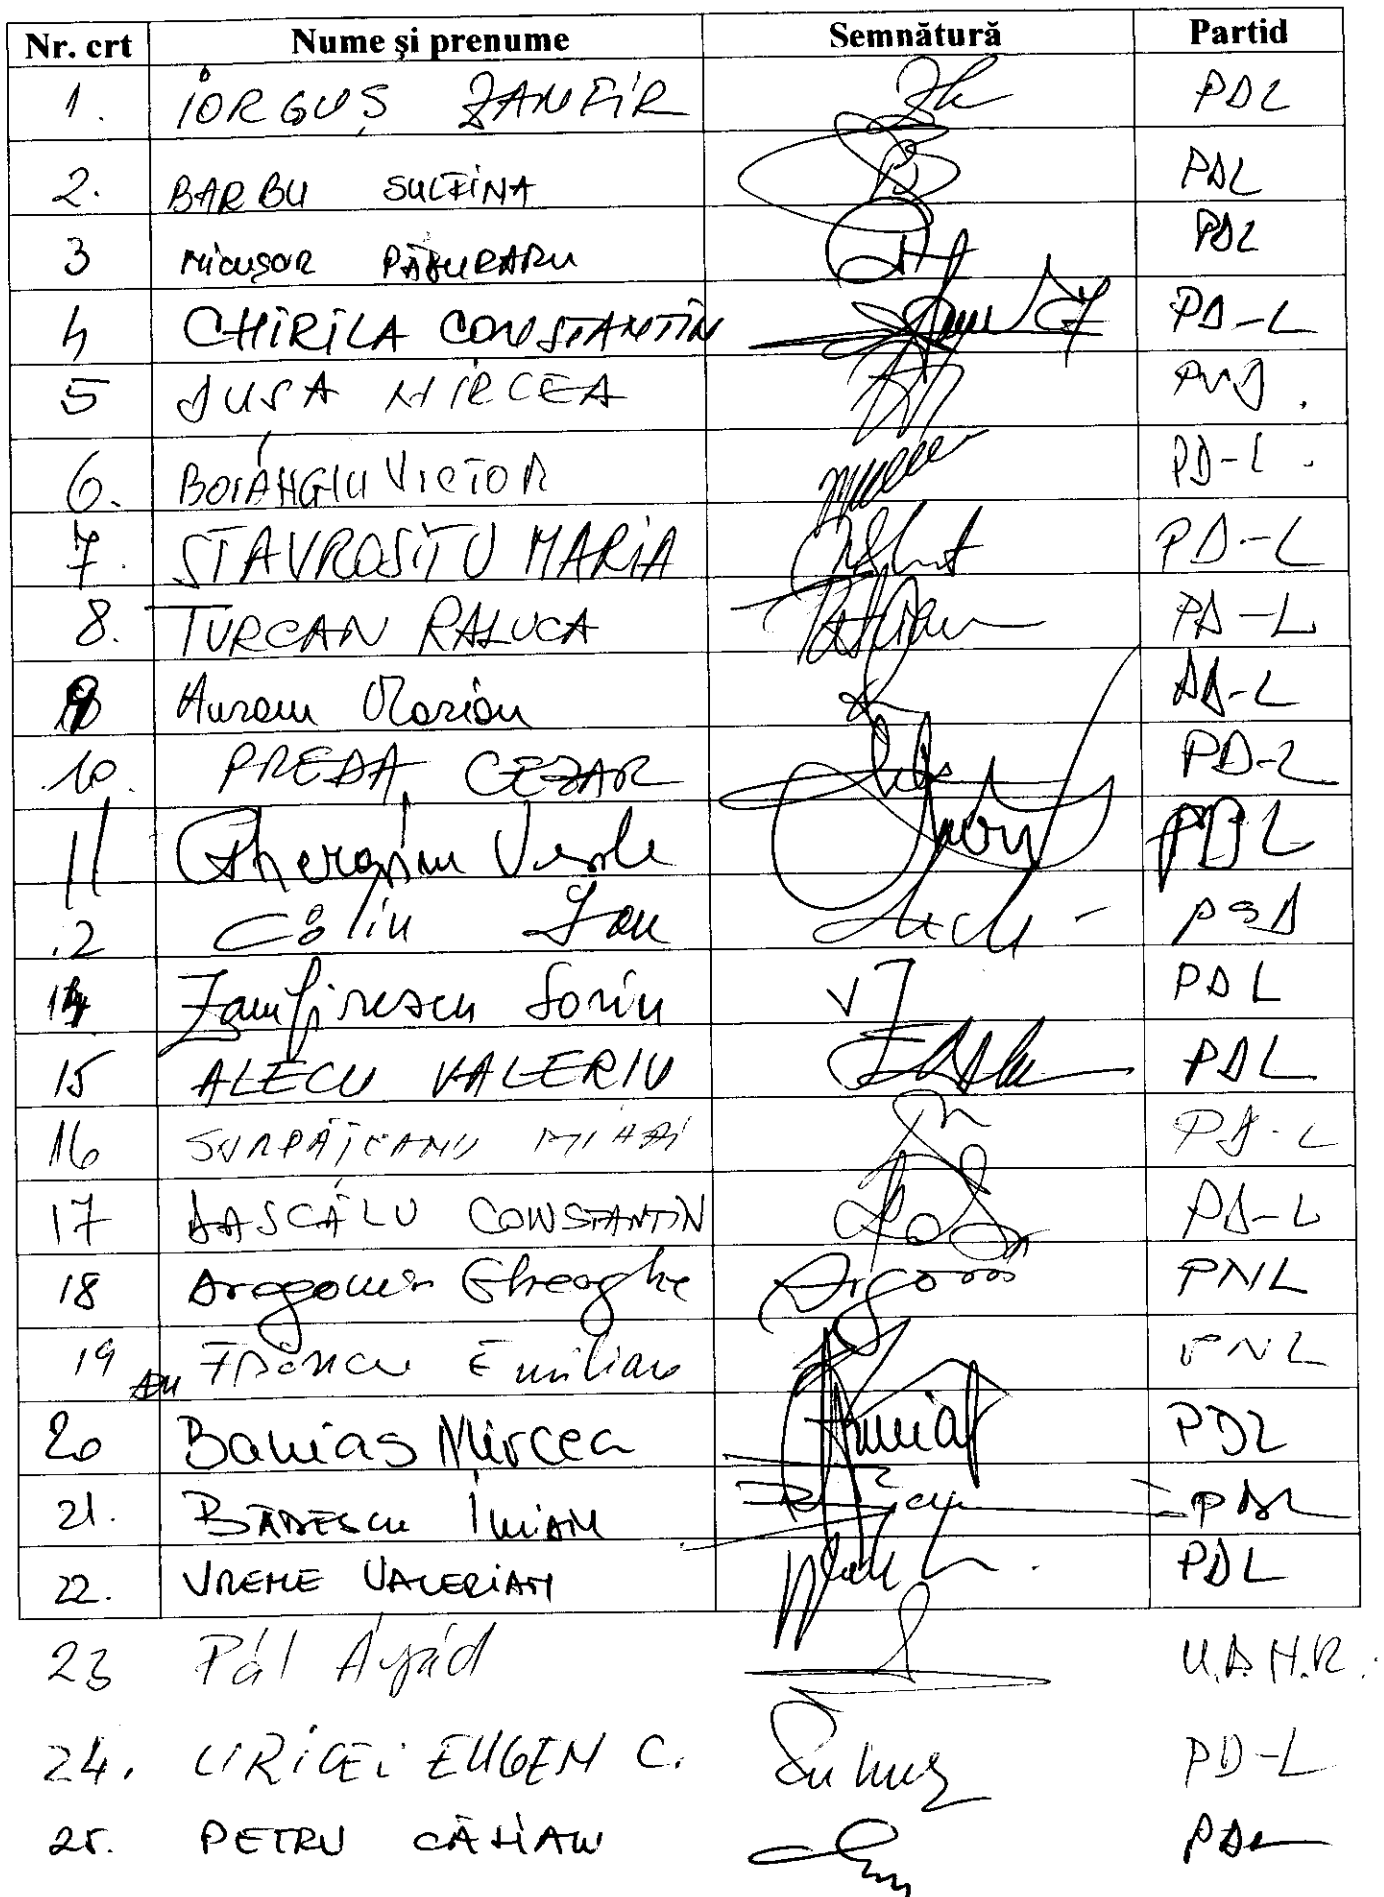 Nr. crt Nume și prenume Semnătură Partid
1. IORGUȘ ZANFIR PDL
2. BARBU SULFINA PDL
3 MICUȘOR PĂDURARU PDL
4 CHIRILA CONSTANTIN PD-L
5 DUȘA MIRCEA
6. BOIÂNGIU VICTOR PD-L.
7. STAVROSITU MARIA PD-L
8. TURCAN RALUCA PD-L
9 Avram Marian PD-L
10. PREDA CEZAR PD-L
11 Gherasim Vasile PDL
12 Călin Ion PSD
14 Zamfirescu Sorin PDL
15 ALECU VALERIU PDL
16 SURPĂȚEANU MIHAI PD-L
17 DASCĂLU CONSTANTIN PD-L
18 Dragomir Gheorghe PNL
19 Francu Emilian PNL
20 Banias Mircea PDL
21. BĂDESCU IULIAN PDL
22. VREME VALERIAN PDL
23 Pál Árpád U.D.M.R.
24. URICEI EUGEN C. PD-L
25. PETRU CĂLIAN PDL